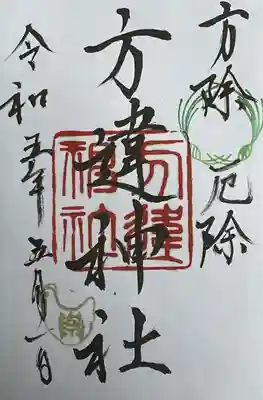 方除 厄除
方違神社
方違
神社
令和五年五月一日